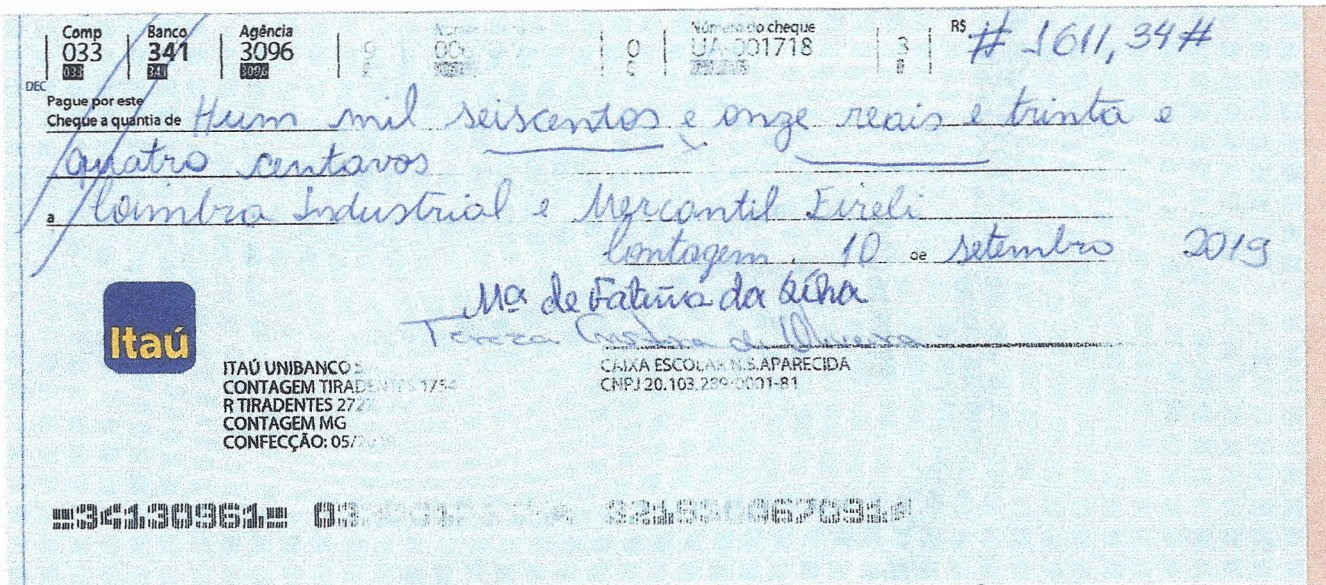 Comp Banco Agência Número do cheque R$
033 341 3096 UA-001718 3 # 1611,34 #
033 341 3096
DEC
Pague por este
Cheque a quantia de Hum mil seiscentos e onze reais e trinta e
quatro centavos
a Coimbra Industrial e Mercantil Eireli
Contagem, 10 de setembro 2019
Mª de Fatima da
Tereza de Oliveira
Itaú
ITAÚ UNIBANCO
CONTAGEM TIRADENTES 1754
R TIRADENTES 2727
CONTAGEM MG
CONFECÇÃO: 05/
CAIXA ESCOLAR N.S.APARECIDA
CNPJ 20.103.239/0001-81
34130961